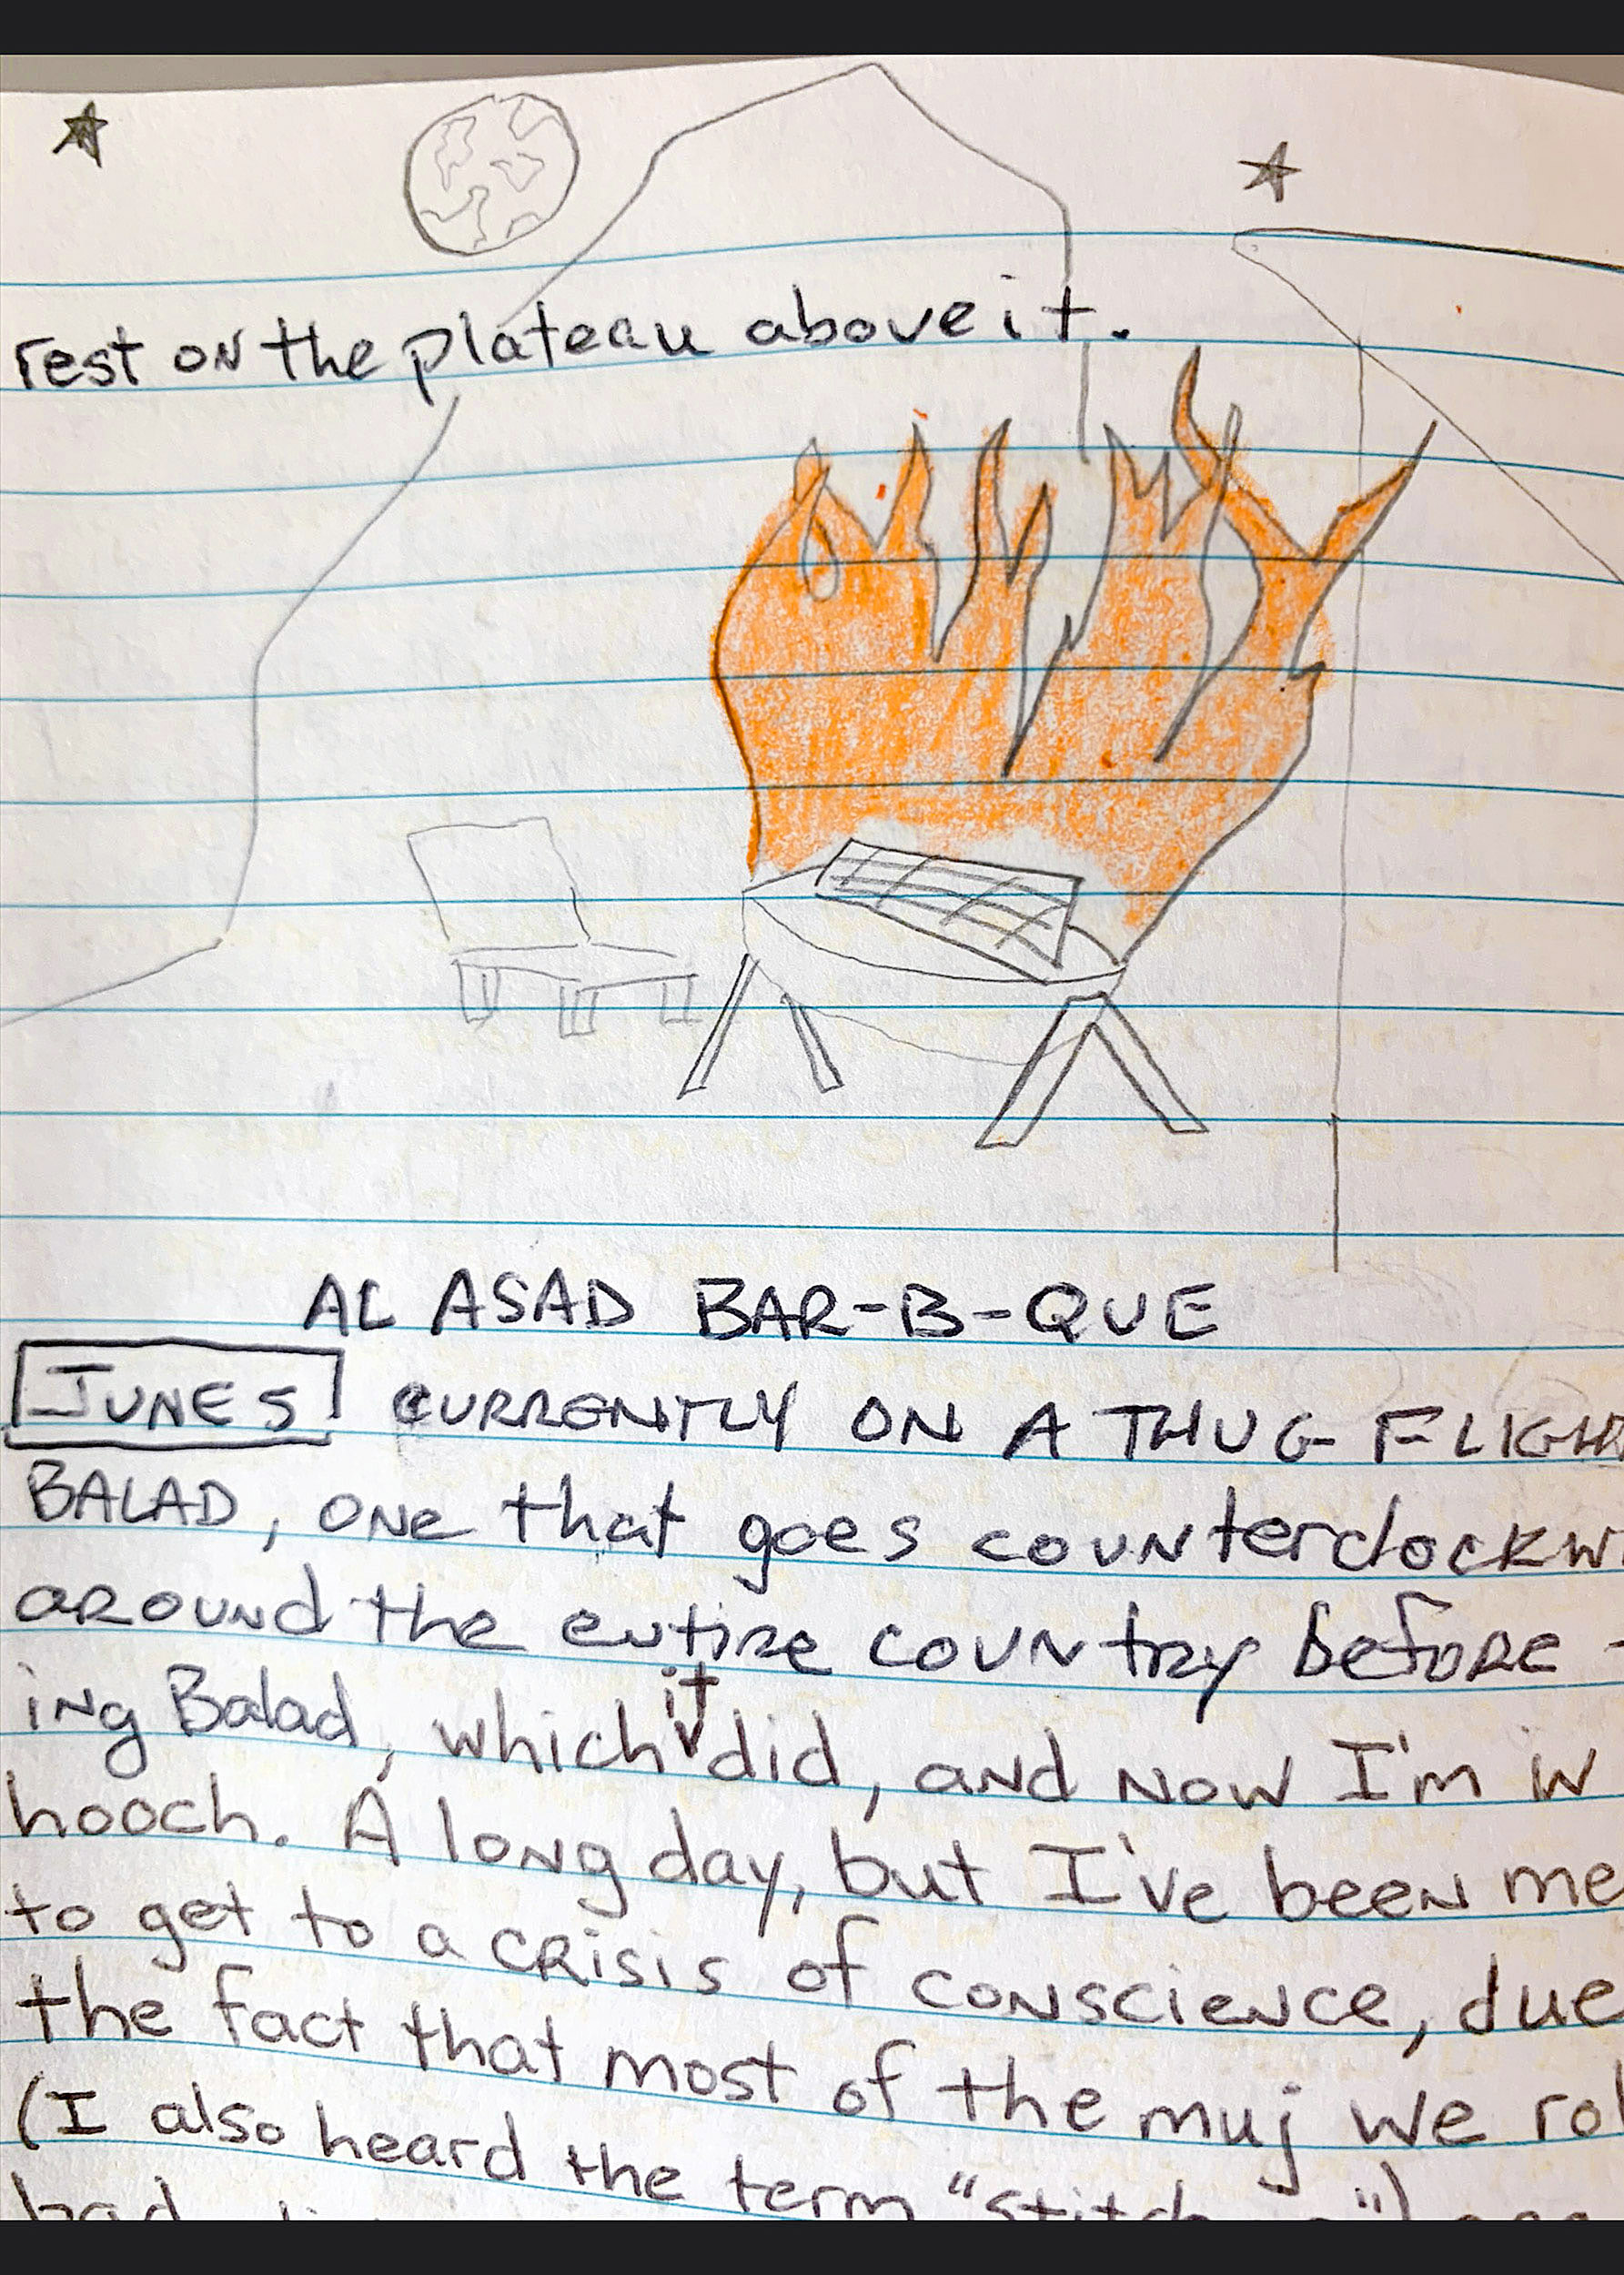 rest on the plateau above it.
AL ASAD BAR-B-QUE
JUNE 5 CURRENTLY ON A THUG FLIGH
BALAD, one that goes counterclockwi
around the entire country before
ing Balad, which it did, and now I'm in
hooch. A long day, but I've been me
to get to a crisis of conscience, due
the fact that most of the muj we rol
(I also heard the term "stitch
had